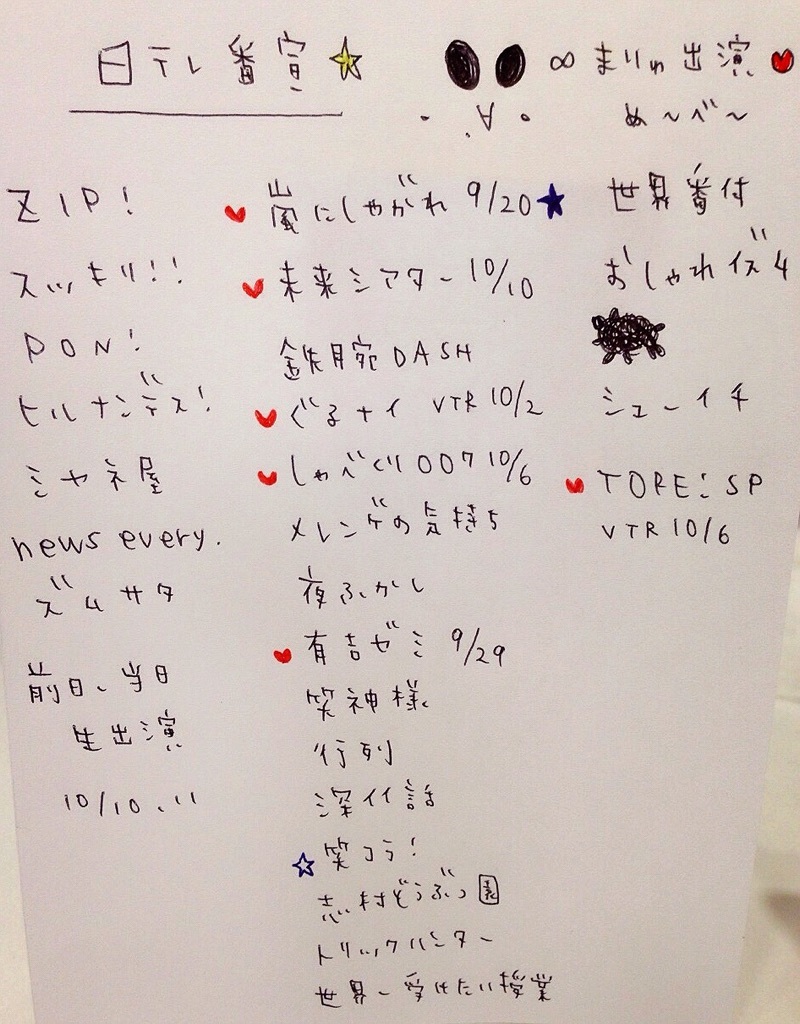 日テレ番宣☆
∞ まりゅ出演
め〜べ〜
ZIP!
スッキリ!!
PON!
ヒルナンデス!
ミヤネ屋
news every.
ズムサタ
前日、当日
生出演
10/10、11
嵐にしやがれ 9/20
未来シアター 10/10
鉄腕DASH
ぐるナイ VTR 10/2
しゃべくり007 10/6
メレンゲの気持ち
夜ふかし
有吉ゼミ 9/29
笑神様
行列
深イイ話
笑コラ!
志村どうぶつ園
トリックハンター
世界一受けたい授業
世界番付
おしゃれイズム
シューイチ
TORE! SP
VTR 10/6